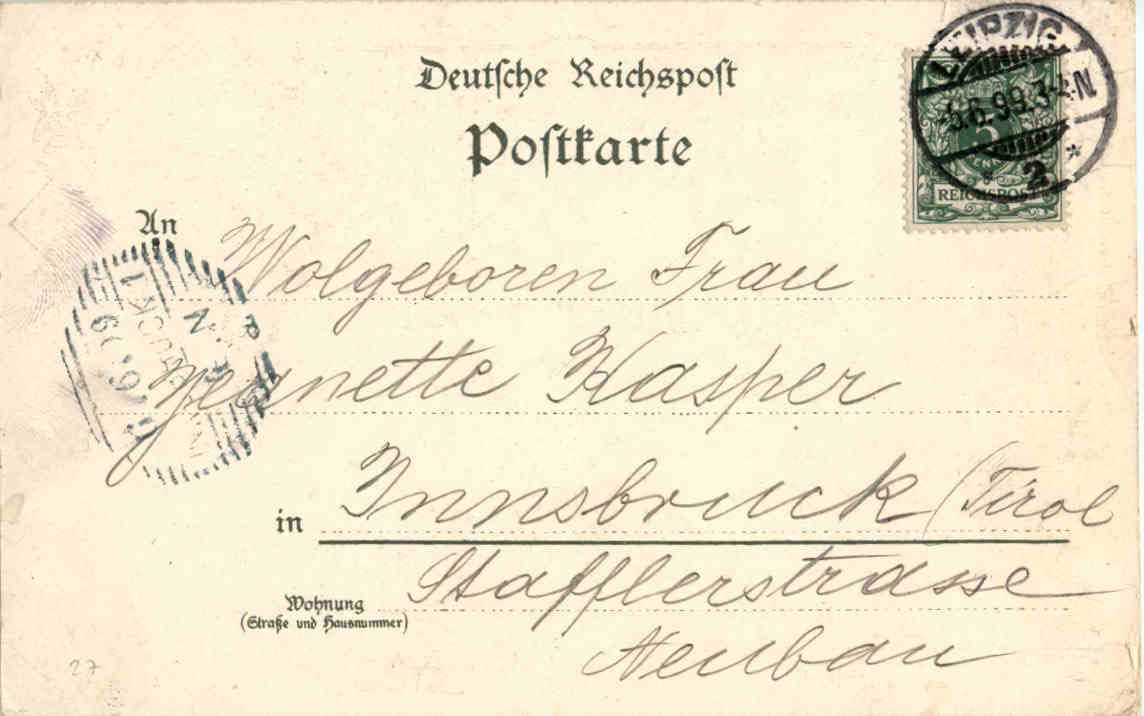 Deutsche Reichspost
Postkarte
LEIPZIG
6.99.3-4N
2
5
REICHSPOST
An Wolgeboren Frau
Jeanette Kasper
in Innsbruck (Tirol
Wohnung Stafflerstrasse
(Straße und Hausnummer)
Neubau
27